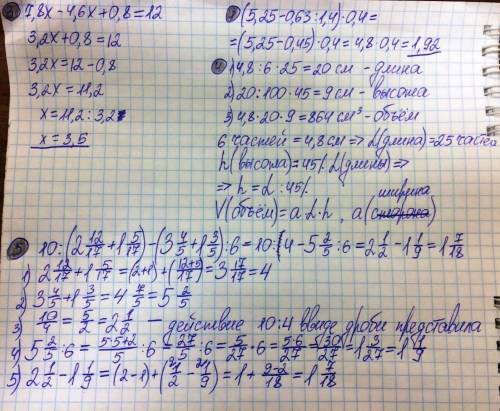 ② 7,8x - 4,6x + 0,8 = 12
3,2x + 0,8 = 12
3,2x = 12 - 0,8
3,2x = 11,2
x = 11,2 : 3,2
x = 3,5
① (5,25 - 0,63 : 1,4) · 0,4 =
= (5,25 - 0,45) · 0,4 = 4,8 · 0,4 = 1,92
④ 1) 4,8 : 6 · 25 = 20 см - длина
2) 20 : 100 · 45 = 9 см - высота
3) 4,8 · 20 · 9 = 864 см³ - объём
6 частей = 4,8 см => L(длина) = 25 частей
h(высота) = 45% L(длины) =>
=> h = L : 45%
ширина
V(объём) = a · L · h , a (сторона)
⑤ 10 : (2 12/17 + 1 5/17) - (3 4/5 + 1 3/5) : 6 = 10 : 4 - 5 2/5 : 6 = 2 1/2 - 1 1/9 = 1 7/18
1) 2 12/17 + 1 5/17 = (2+1) + (12+5/17) = 3 17/17 = 4
2) 3 4/5 + 1 3/5 = 4 7/5 = 5 2/5
3) 10/4 = 5/2 = 2 1/2 — действие 10:4 ввиде дроби представила
4) 5 2/5 : 6 = 5·5+2/5 : 6 = 27/5 : 6 = 5/27 · 6 = 5·6/27 = 30/27 = 1 3/27 = 1 1/9
5) 2 1/2 - 1 1/9 = (2-1) + (1/2 - 1/9) = 1 + 9-2/18 = 1 7/18